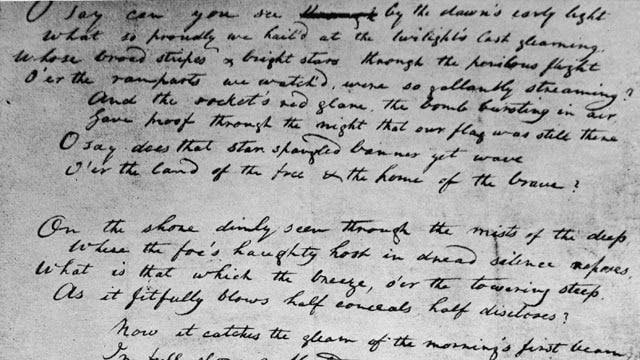 O say can you see ~~through~~ by the dawn's early light
What so proudly we hail'd at the twilight's last gleaming,
Whose broad stripes & bright stars through the perilous fight
O'er the ramparts we watch'd, were so gallantly streaming?
And the rocket's red glare, the bomb bursting in air,
Gave proof through the night that our flag was still there
O say does that star spangled banner yet wave
O'er the land of the free & the home of the brave?
On the shore dimly seen through the mists of the deep,
Where the foe's haughty host in dread silence reposes,
What is that which the breeze, o'er the towering steep,
As it fitfully blows, half conceals half discloses?
Now it catches the gleam of the morning's first beam,
In full